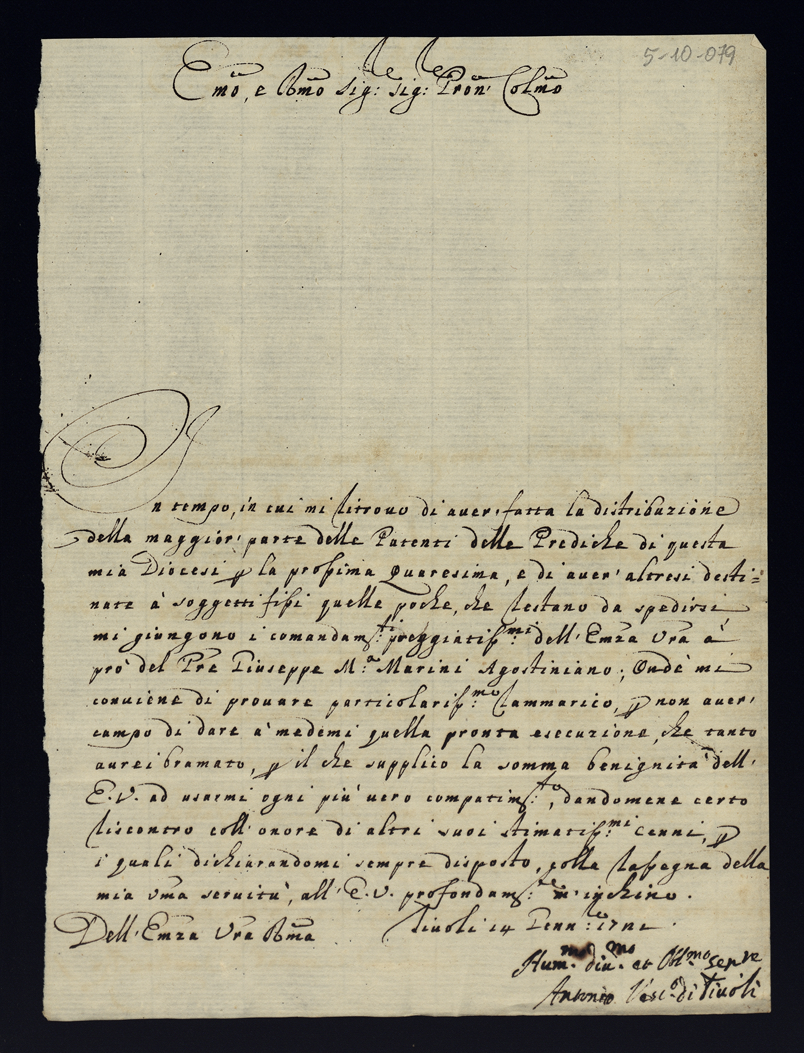 5-10-079
Emo, e Rmo Sig: Sig: Pron Colmo
In tempo, in cui mi ritrovo di aver fatta la distribuzione
della maggior parte delle Patenti delle Prediche di questa
mia Diocesi p la prossima Quaresima, e di aver altresi desti=
nate à soggetti fissi quelle poche, che restano da spedirsi
mi giungono i comandam:ti preggiatiss:mi dell'Emza Vra à
prò del Pre Giuseppe M:a Marini Agostiniano; Onde mi
conviene di provare particolariss:mo rammarico, p non aver
campo di dare à medemi quella pronta esecuzione, che tanto
aurei bramato, p il che supplico la somma benignità dell'
E.V. ad usarmi ogni più vero compatim:to, dandomene certo
riscontro coll'onore di altri suoi stimatiss:mi cenni, p
i quali dichiarandomi sempre disposto, colla rassegna della
mia vma servitù, all'E.V. profondam:te m'inchino.
Dell'Emza Vra Rma Tivoli 14 Genn:ro
Hum:mo div:mo et Obl:mo serve
Antonio Vesc:o di Tivoli